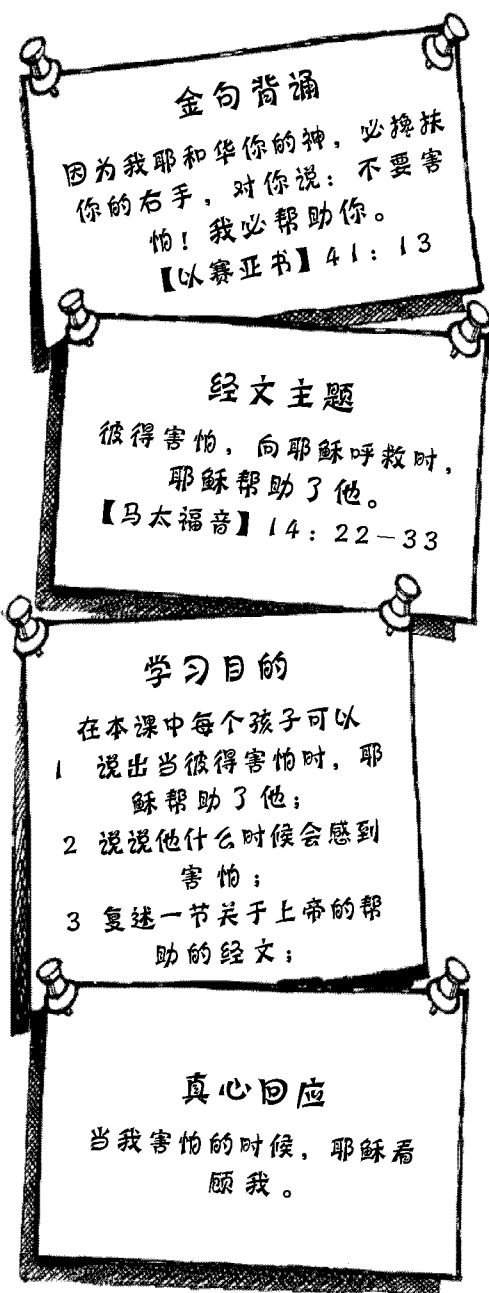 金句背诵
因为我耶和华你的神，必搀扶
你的右手，对你说：不要害
怕！我必帮助你。
【以赛亚书】41：13
经文主题
彼得害怕，向耶稣呼救时，
耶稣帮助了他。
【马太福音】14：22－33
学习目的
在本课中每个孩子可以
1 说出当彼得害怕时，耶
稣帮助了他；
2 说说他什么时候会感到
害怕；
3 复述一节关于上帝的帮
助的经文；
真心回应
当我害怕的时候，耶稣看
顾我。